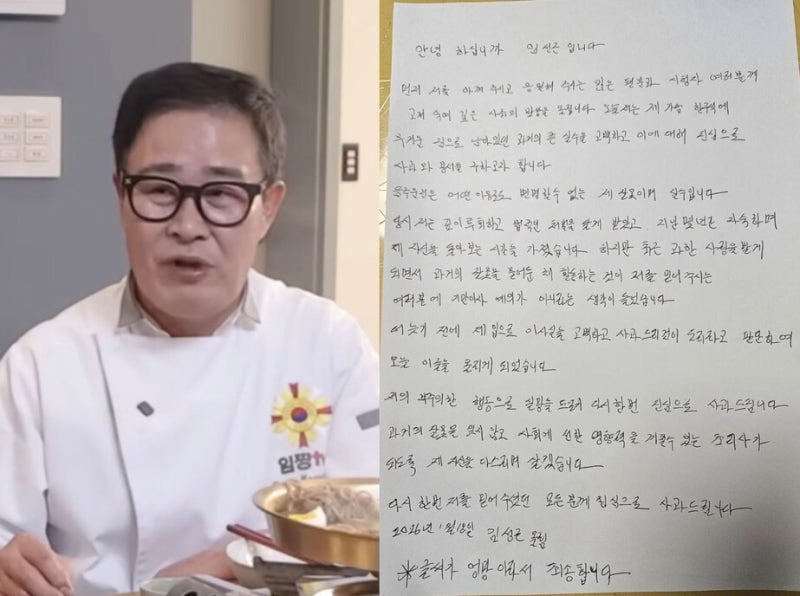 임짱TV
안녕 하십니까 임성근 입니다
먼저 저를 아껴 주시고 응원해 주시는 많은 팬분과 시청자 여러분께
고개 숙여 깊은 사죄의 말씀을 드립니다 오늘 저는 제 가슴 한구석에
무거운 짐으로 남아있던 과거의 큰 실수를 고백하고 이에 대해 진심으로
사과와 용서를 구하고자 합니다
음주운전은 어떤 이유로도 변명할수 없는 제 잘못이며 실수입니다
당시 저는 깊이 후회하고 법적인 처벌을 달게 받았고, 지난 몇년간 자숙하며
제 자신을 돌아보는 시간을 가졌습니다 하지만 최근 과한 사랑을 받게
되면서 과거의 잘못을 묻어둔 채 활동하는 것이 저를 믿어 주시는
여러분에 기만이자 예의가 아니라는 생각이 들었습니다
더 늦기 전에 제 입으로 이사실을 고백하고 사과드리는것이 도리라고 판단하여
오늘 이글을 올리게 되었습니다
저의 부주의한 행동으로 실망을 드려 다시한번 진심으로 사과드립니다
과거의 잘못을 잊지 않고 사회에 선한 영향력을 끼칠수 있는 조리사가
되도록 제 자신을 다스리며 살겠습니다
다시 한번 저를 믿어주셨던 모든분께 진심으로 사과 드립니다
2026년 1월18일 임성근 올림
※글씨가 엉망 이라서 죄송합니다